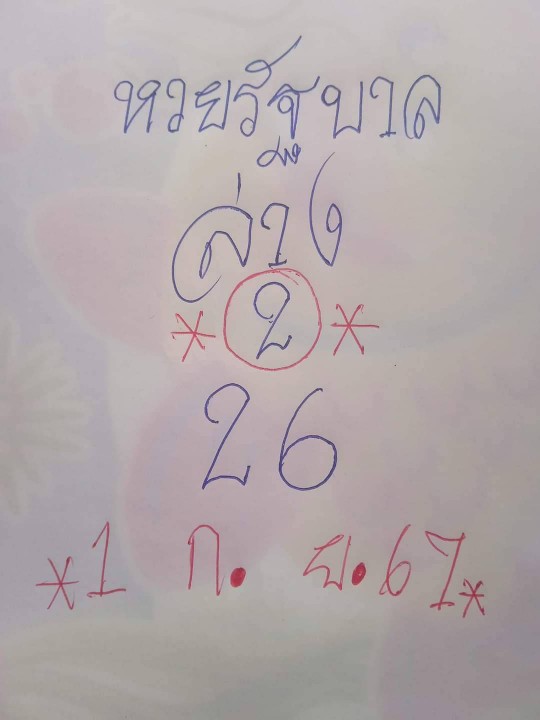 หวยรัฐบาล
ล่าง
*2*
26
*1 ก. ย. 67*